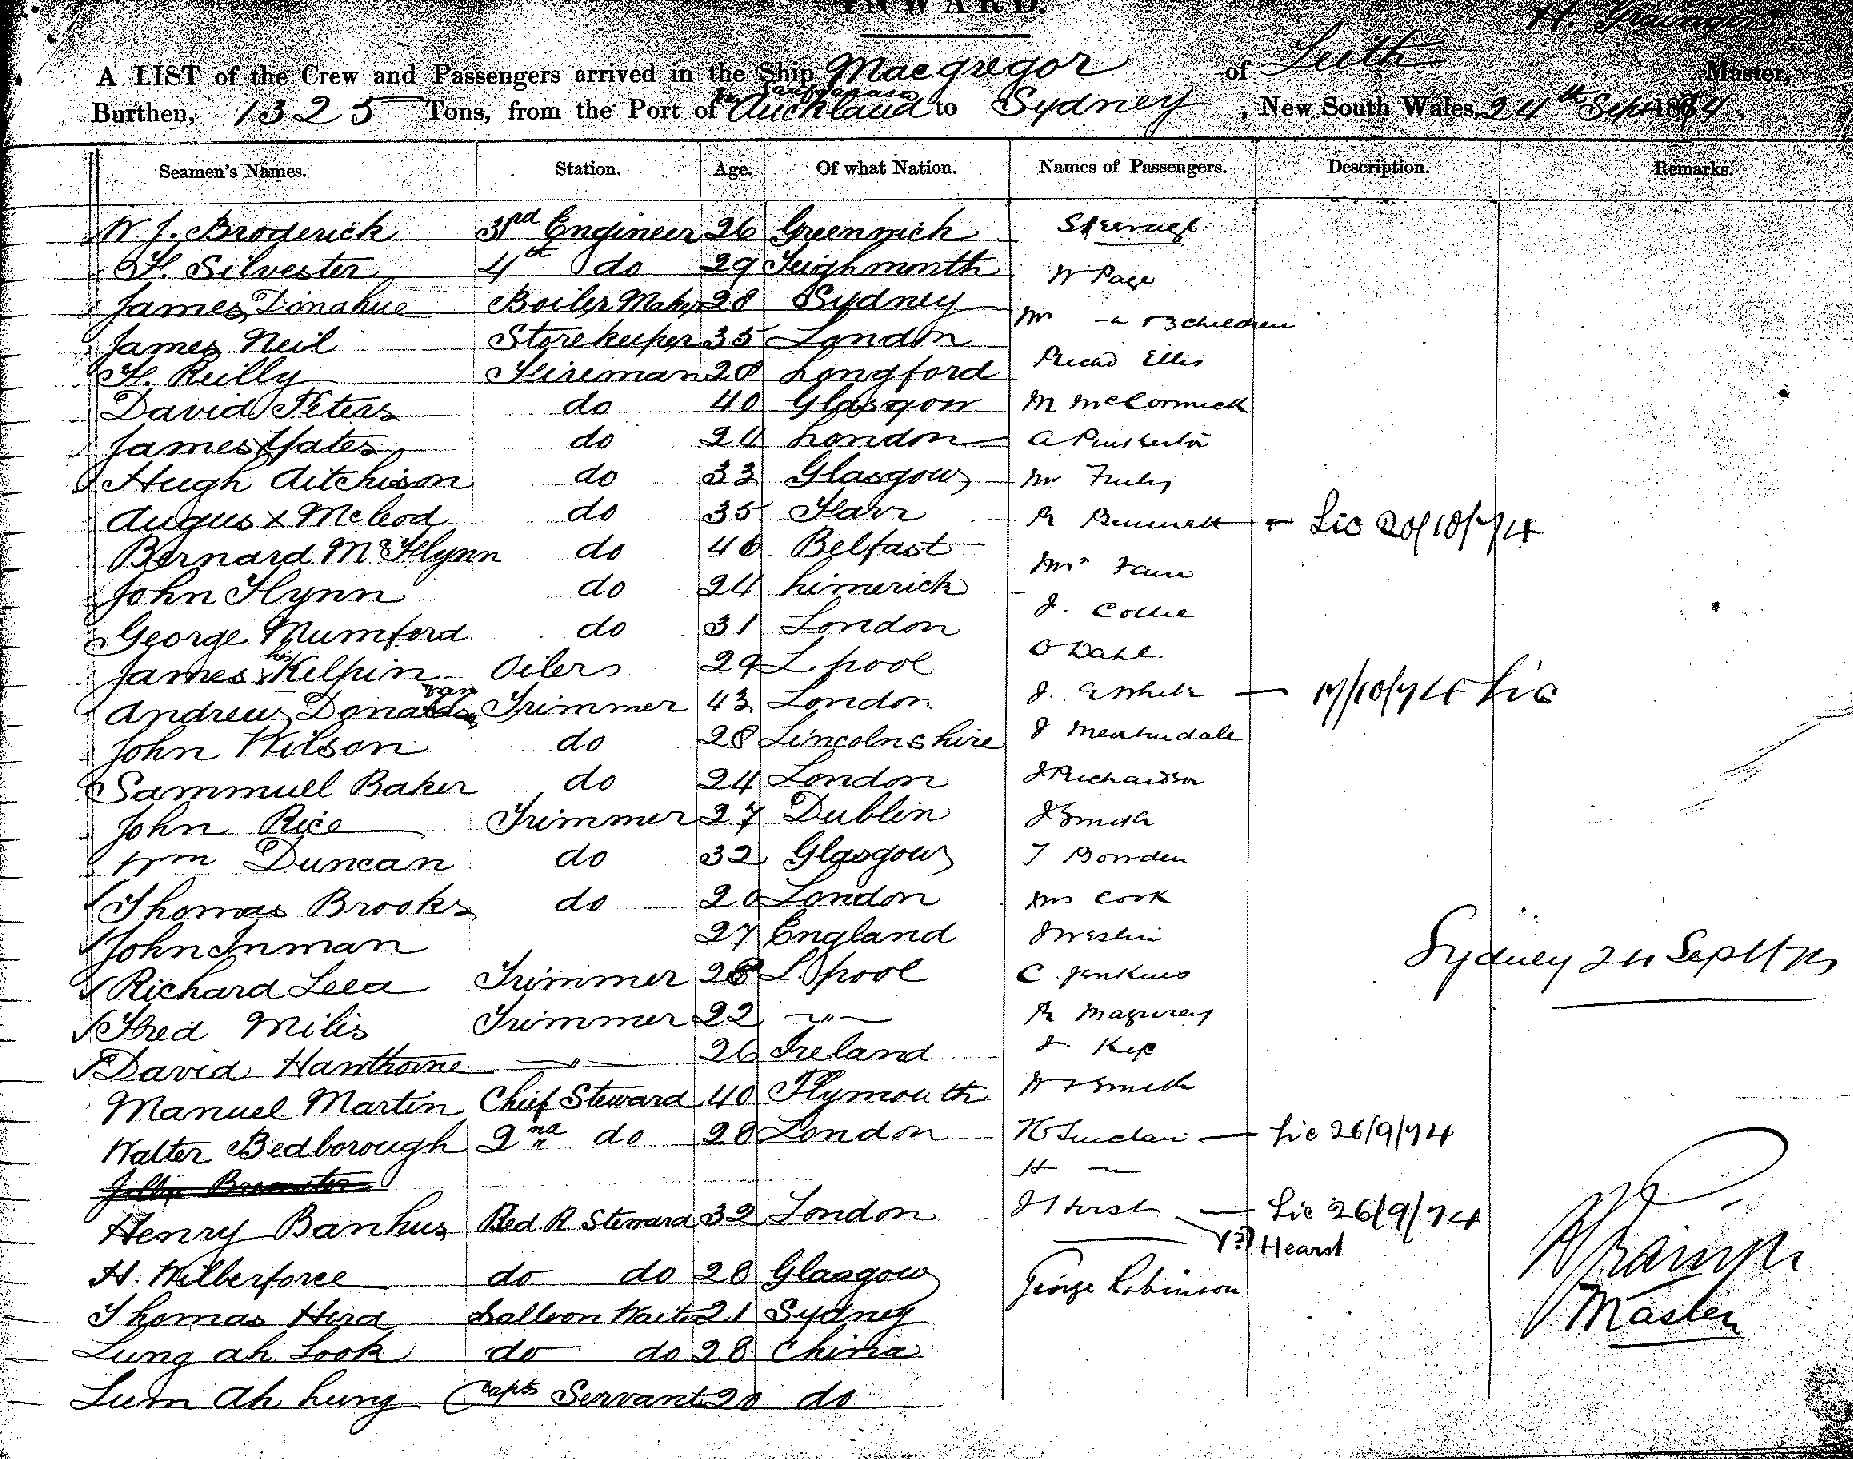 INWARD.
H. Grainger
A LIST of the Crew and Passengers arrived in the Ship Macgregor of Leith Master,
Burthen, 1325 Tons, from the Port of Auckland to Sydney, New South Wales, 24th Sept 1874
Seamen's Names. Station. Age. Of what Nation. Names of Passengers. Description. Remarks.
W J. Broderick 3rd Engineer 26 Greenwich Steerage
H. Silvester 4th do 29 Teighmonth W Page
James Donahue Boiler Maker 28 Sydney Mr 3 children
James Neil Storekeeper 35 London Ellis
H. Reilly Fireman 28 Longford
David Peters do 40 Glasgow M McCormick
James Yates do 20 London A
Hugh Aitchison do 33 Glasgow Mr
Angus x McLeod do 35 R Bennett Lic 20/10/74
Bernard McFlynn do 40 Belfast
John Flynn do 24 Limerick J. Collie
George Mumford do 31 London O Dahl
James his x Kelpin Oilers 29 L.pool J. White 17/10/74 Lic
Andrew Donavan Trimmer 43 London
John Wilson do 28 Lincolnshire J
Sammuel Baker do 24 London J Richardson
John Rice Trimmer 27 Dublin J Smith
Wm Duncan do 32 Glasgow T Bowden
Thomas Brooks do 20 London Mrs Cook
John Inman 27 England J
Richard Leea Trimmer 28 L.pool C. Jenkins
Sydney 24 Sept/74
Fred Milis Trimmer 22 -"- R
David Hawthorne -"- 26 Ireland J
Manuel Martin Chief Steward 40 Plymouth W Smith
Walter Bedborough 2nd do 28 London Sinclair Lic 26/9/74
H
Henry Banhus Bed R Steward 32 London J Hurst Lic 26/9/74
(?) Hearst
H. Wilberforce do do 28 Glasgow George Robinson
H Grainger
Master
Thomas Herd Salloon Waiter 21 Sydney
Lung Ah Look do do 28 China
Lum Ah Lung Capts Servant 20 do